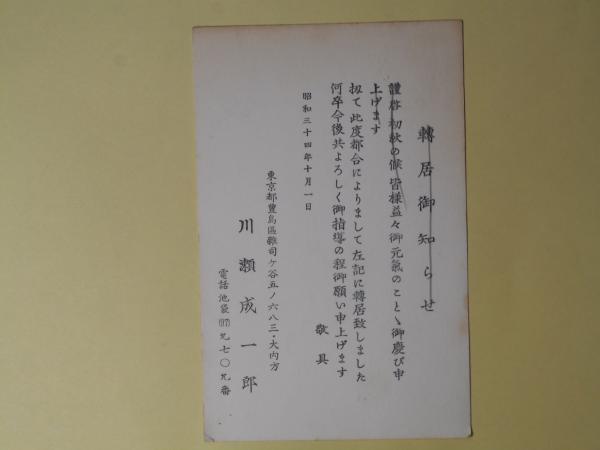 轉居御知らせ
謹啓 初秋の候 皆様益々御元氣のことゝ御慶び申
上げます
扨て 此度都合によりまして左記に轉居致しました
何卒今後共よろしく御指導の程御願い申上げます
敬具
昭和三十四年十月一日
東京都豊島區雜司ケ谷五ノ六八三・大内方
川瀬成一郎
電話池袋(97)九七〇九番